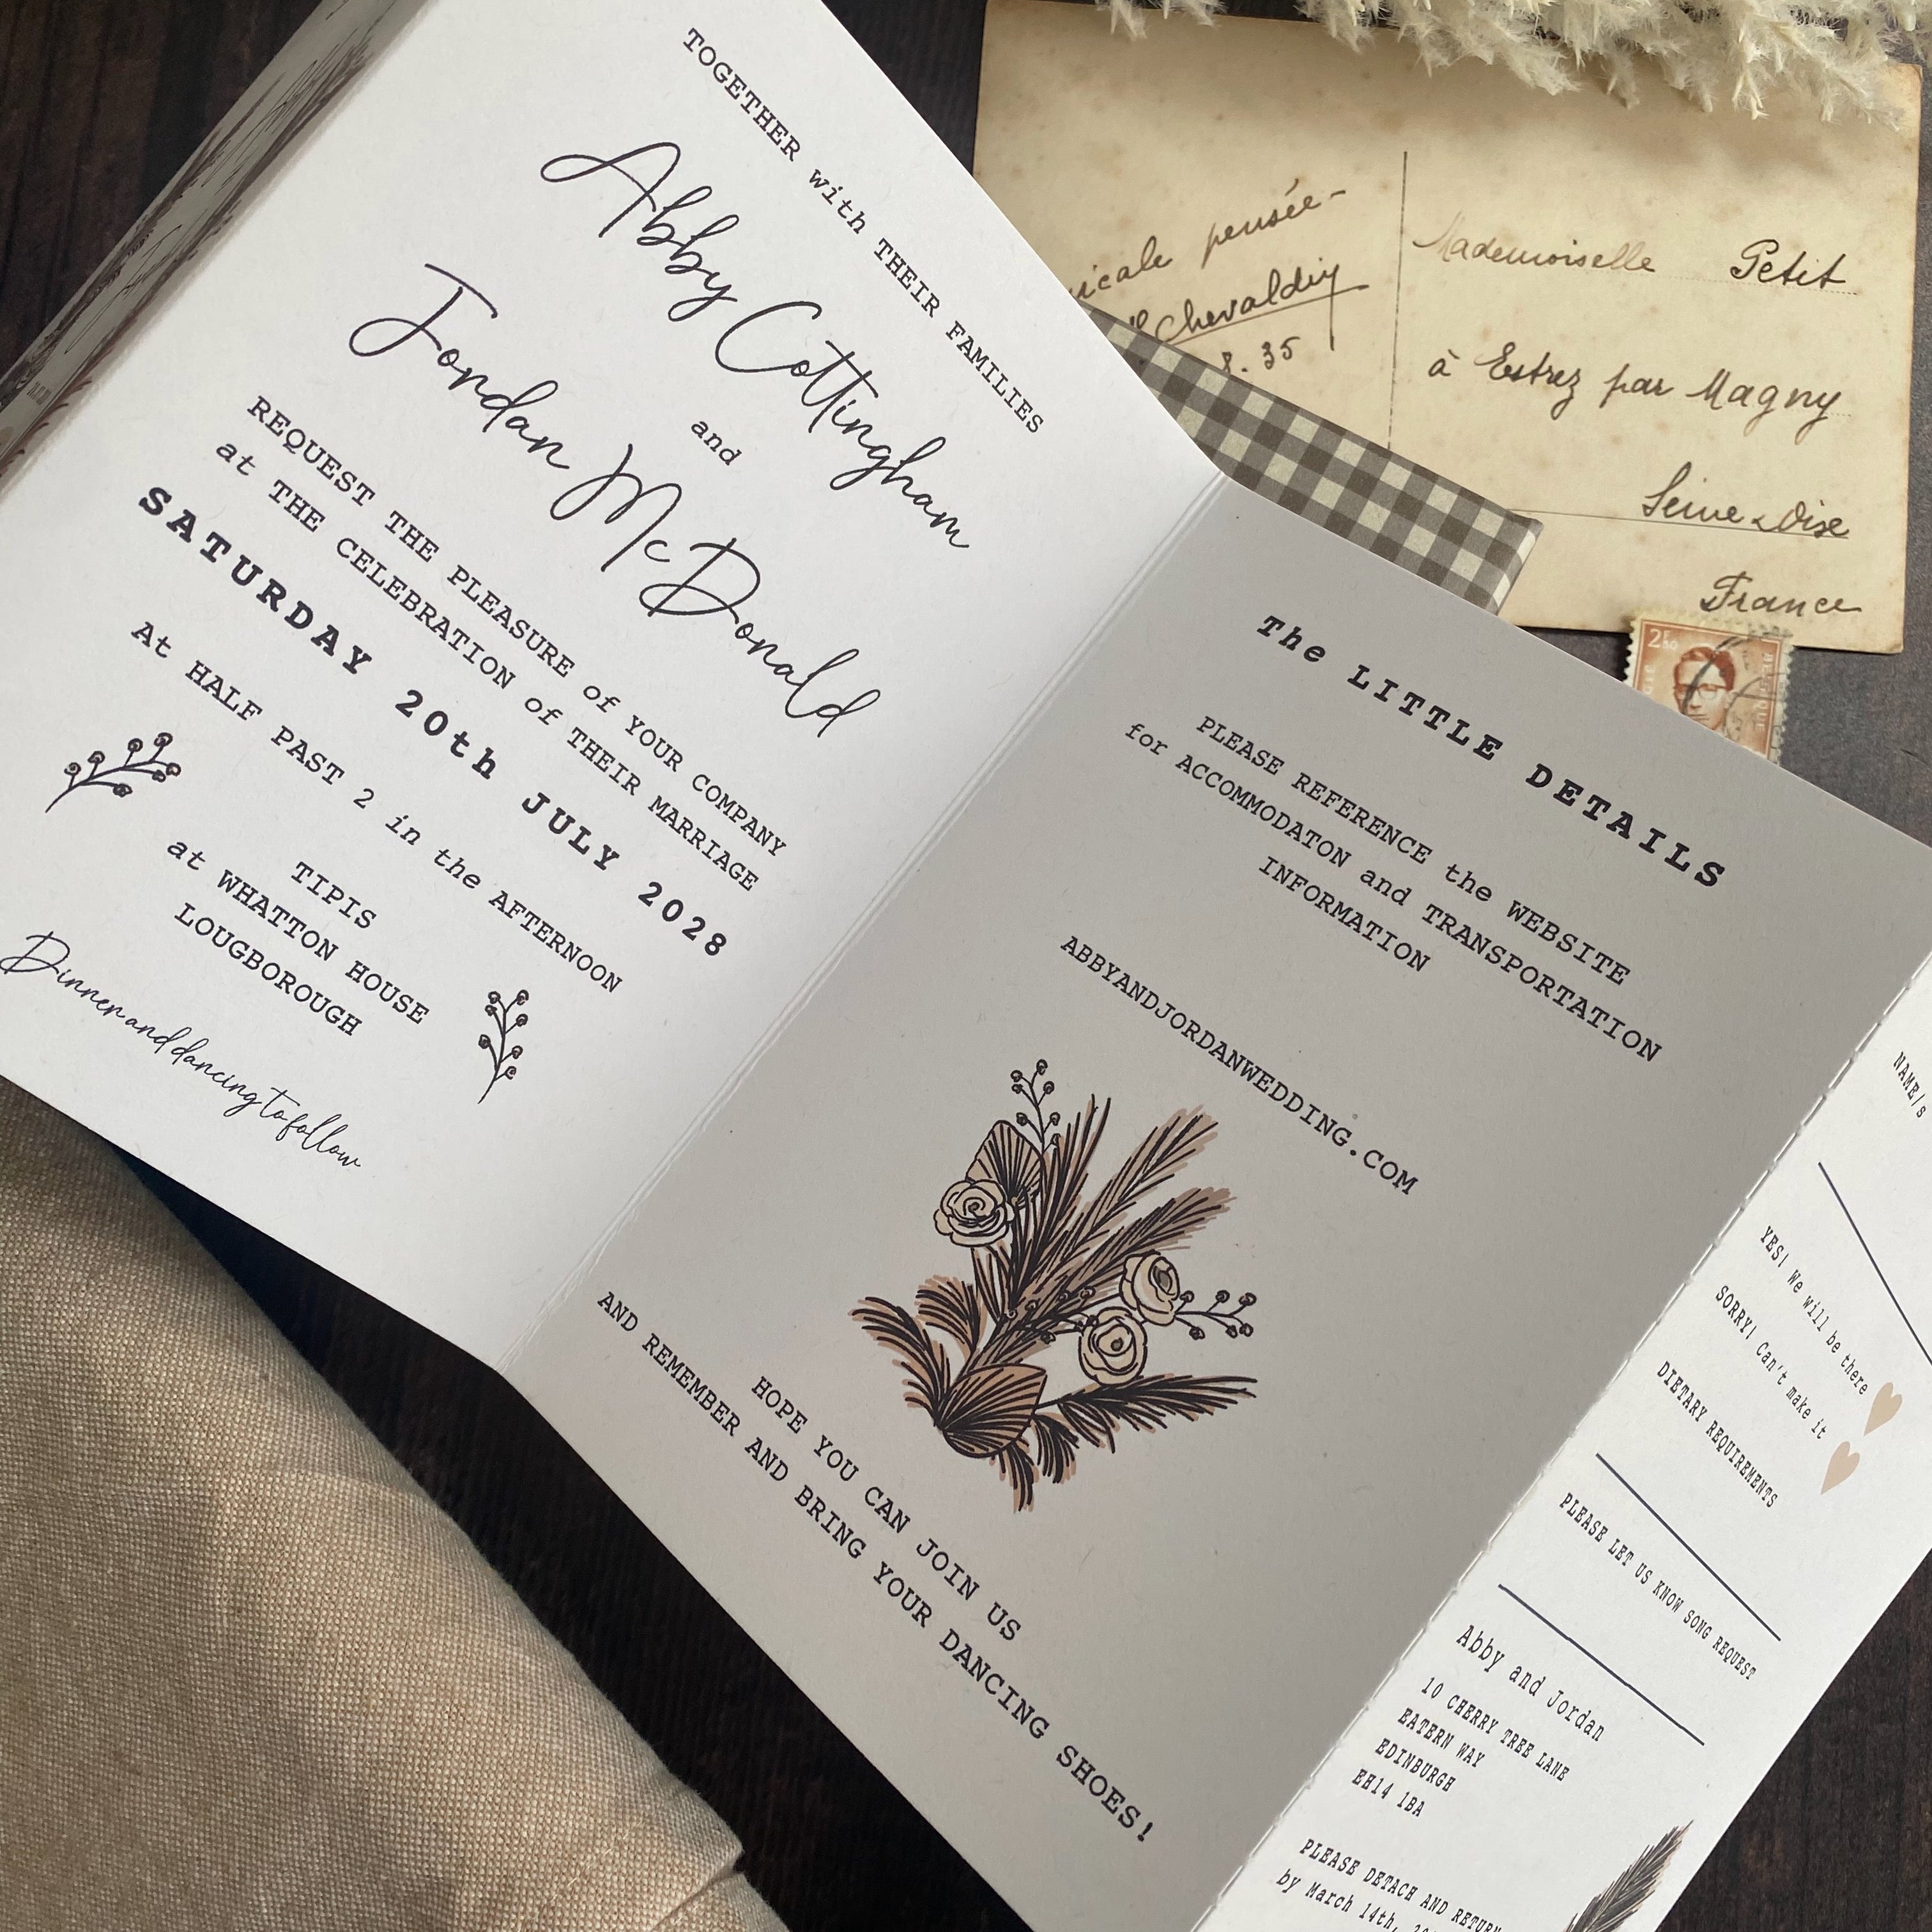 TOGETHER with THEIR FAMILIES
Abby Cottingham
and
Jordan McDonald
REQUEST THE PLEASURE of YOUR COMPANY
at THE CELEBRATION of THEIR MARRIAGE
SATURDAY 20th JULY 2028
At HALF PAST 2 in the AFTERNOON
TIPIS
at WHATTON HOUSE
LOUGBOROUGH
Dinner and dancing to follow
The LITTLE DETAILS
PLEASE REFERENCE the WEBSITE
for ACCOMMODATON and TRANSPORTATION
INFORMATION
ABBYANDJORDANWEDDING.COM
HOPE YOU CAN JOIN US
AND REMEMBER AND BRING YOUR DANCING SHOES!
NAME/s
YES! We will be there
SORRY! Can't make it
DIETARY REQUIREMENTS
PLEASE LET US KNOW SONG REQUEST
Abby and Jordan
10 CHERRY TREE LANE
EATERN WAY
EDINBURGH
EH14 1BA
PLEASE DETACH AND RETURN
by March 14th,
pensée
Chevaldin
8. 35
Mademoiselle Petit
à Estrez par Magny
Seine & Oise
France